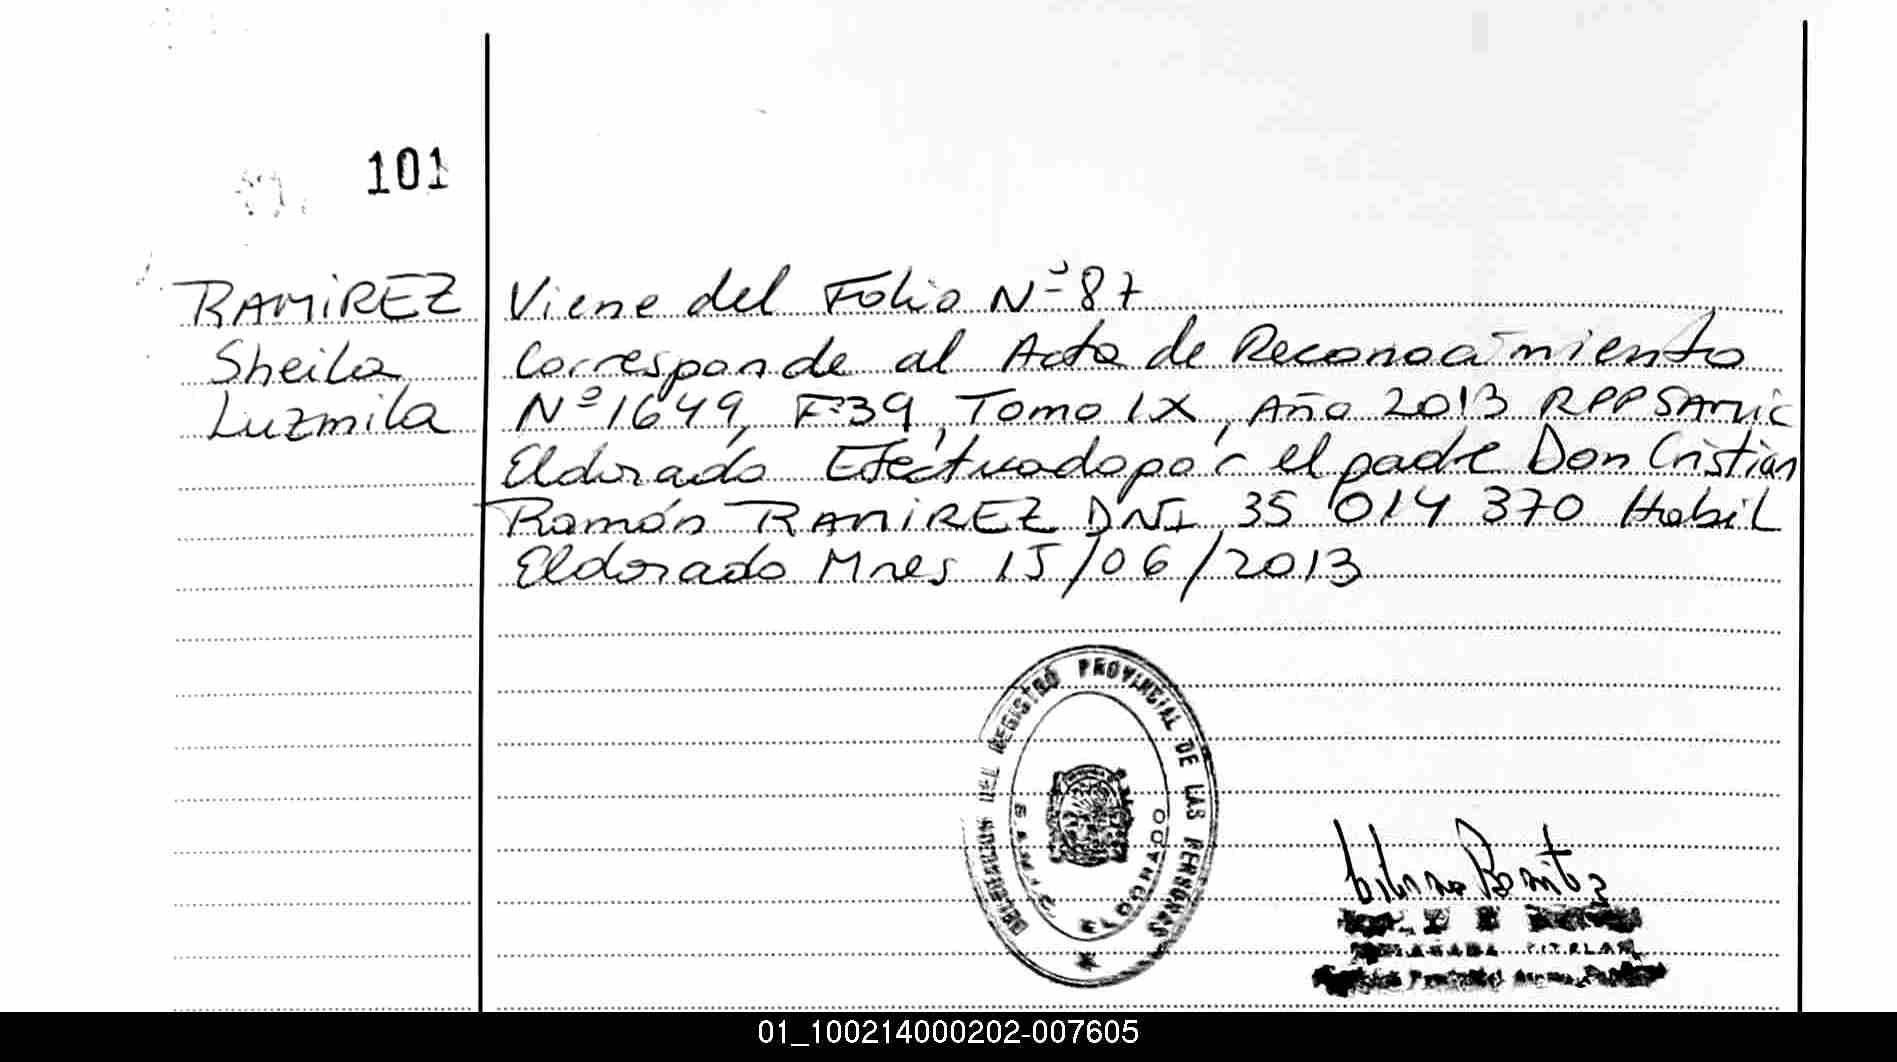 101
RAMIREZ
Sheila
Luzmila
Viene del Folio Nº 87
Corresponde al Acta de Reconocimiento
Nº 1649, Fº 39, Tomo IX, Año 2013 RPPSAMIC
Eldorado Efectuado por el padre Don Cristian
Ramón RAMIREZ DNI 35 014 370 Habil
Eldorado Mnes 15/06/2013
DEL REGISTRO PROVINCIAL DE LAS PERSONAS
ELDORADO
Benitez
TITULAR
01_100214000202-007605